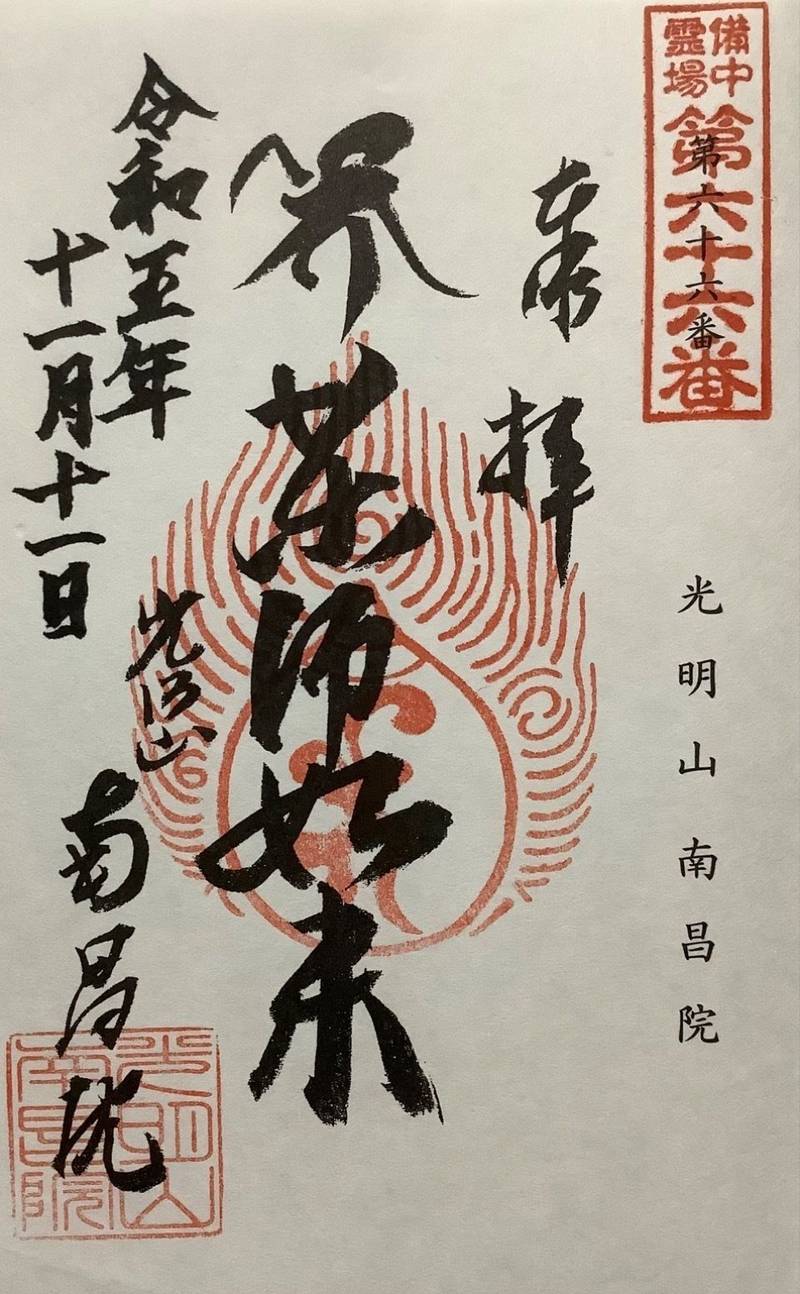 備中
霊場
第六十六番
第六十六番
光明山南昌院
奉拝
薬師如来
光明山
南昌院
令和五年
十一月十一日
光明山
南昌院